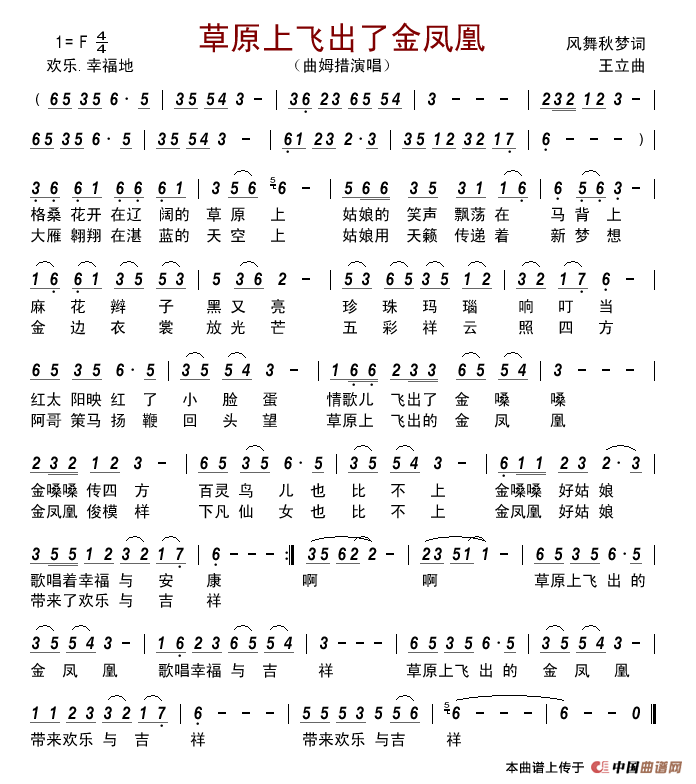 草原上飞出了金凤凰
1= F 4/4
风舞秋梦词
欢乐.幸福地
（曲姆措演唱）
王立曲
( 65 35 6· 5 | 35 54 3 - | 36 23 65 54 | 3 - - - | 232 12 3 - |
65 35 6· 5 | 35 54 3 - | 61 23 2·3 | 35 12 32 17 | 6 - - - )
36 61 66 61 | 3 56 56 - | 566 35 31 16 | 6 56 3 - |
格桑 花开 在辽 阔的 草 原 上 姑娘的 笑声 飘荡 在 马 背 上
大雁 翱翔 在湛 蓝的 天 空 上 姑娘用 天籁 传递 着 新 梦 想
16 61 35 53 | 5 36 2 - | 53 65 35 12 | 32 17 6 - |
麻 花 辫 子 黑 又 亮 珍 珠 玛 瑙 响 叮 当
金 边 衣 裳 放 光 芒 五 彩 祥 云 照 四 方
65 35 6· 5 | 35 54 3 - | 166 233 65 54 | 3 - - - |
红太 阳映 红 了 小 脸 蛋 情歌儿 飞出了 金 嗓 嗓
阿哥 策马 扬 鞭 回 头 望 草原上 飞出的 金 凤 凰
232 12 3 - | 65 35 6· 5 | 35 54 3 - | 611 23 2·3 |
金嗓嗓 传四 方 百灵 鸟 儿 也 比 不 上 金嗓嗓 好姑 娘
金凤凰 俊模 样 下凡 仙 女 也 比 不 上 金凤凰 好姑 娘
355 65 32 17 | 6 - - - :‖ 35 62 2 - | 23 51 1 - | 65 35 6·5 |
歌唱着 幸福 与 安 康 啊 啊 草原上飞 出 的
带来了 欢乐 与 吉 祥
35 54 3 - | 16 23 65 54 | 3 - - - | 65 35 6·5 | 35 54 3 - |
金 凤 凰 歌唱幸福 与 吉 祥 草原上飞 出 的 金 凤 凰
11 23 32 17 | 6 - - - | 55 53 35 56 | 56 - - - | 6 - - 0 ‖
带来欢乐 与 吉 祥 带来欢乐 与吉 祥
本曲谱上传于 中国曲谱网